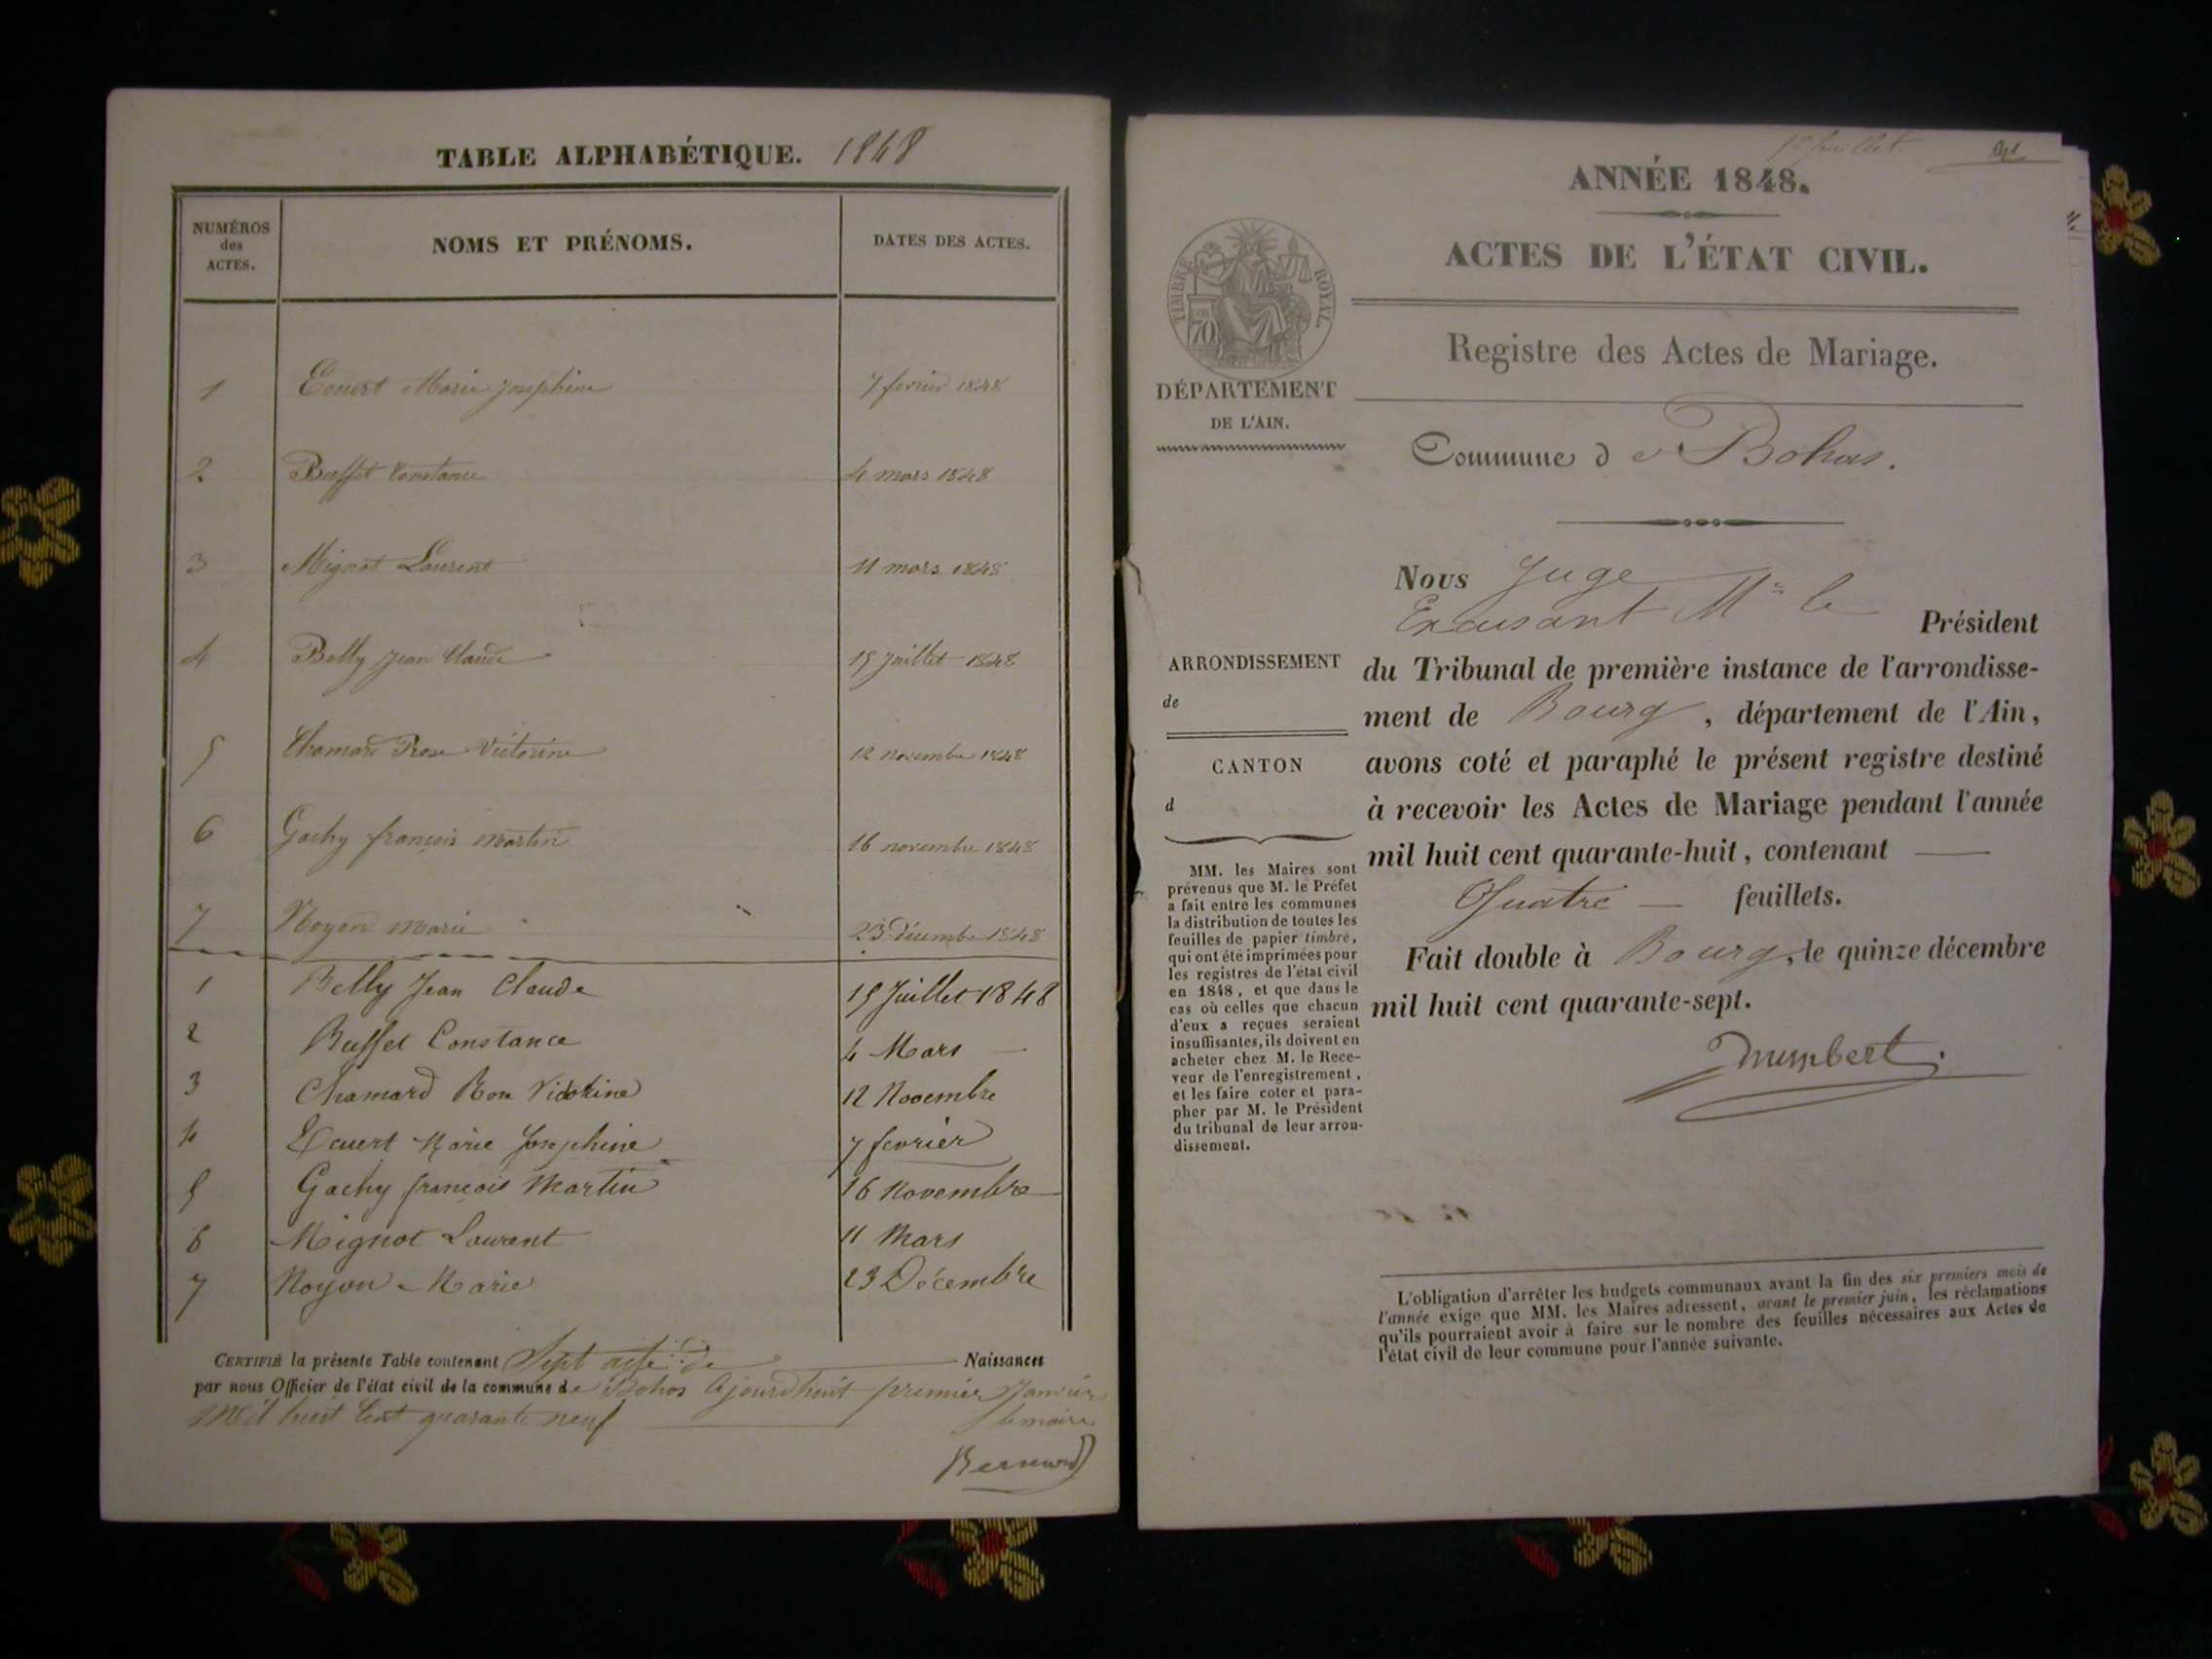 TABLE ALPHABÉTIQUE. 1848
NUMÉROS des ACTES. NOMS ET PRÉNOMS. DATES DES ACTES.
1 Ecuert Marie Josephine 7 fevrier 1848
2 Buffet Constance 4 mars 1848
3 Mignot Laurent 11 mars 1848
4 Belly Jean Claude 15 Juillet 1848
5 Chamard Rose Victorine 12 novembre 1848
6 Gachy françois martin 16 novembre 1848
7 Noyon marie 23 Décembre 1848
1 Belly Jean Claude 15 Juillet 1848
2 Buffet Constance 4 Mars
3 Chamard Rose Victorine 12 Novembre
4 Ecuert Marie Josephine 7 fevrier
5 Gachy françois Martin 16 Novembre
6 Mignot Laurent 11 Mars
7 Noyon Marie 23 Décembre
CERTIFIÉ la présente Table contenant Sept acte de Naissances
par nous Officier de l'état civil de la commune de Bohas Ajourdhuit premier Janvier
Mil huit Cent quarante neuf le maire
Bernard
1er feuillet.
ANNÉE 1848.
ACTES DE L'ÉTAT CIVIL.
TIMBRE ROYAL.
70
Registre des Actes de Mariage.
DÉPARTEMENT
DE L'AIN.
Commune d e Bohas.
Nous Juge
Excusant Mr le Président
du Tribunal de première instance de l'arrondisse-
ment de Bourg, département de l'Ain,
avons coté et paraphé le présent registre destiné
à recevoir les Actes de Mariage pendant l'année
mil huit cent quarante-huit, contenant
Quatre feuillets.
Fait double à Bourg, le quinze décembre
mil huit cent quarante-sept.
ARRONDISSEMENT
de
CANTON
d
MM. les Maires sont
prévenus que M. le Préfet
a fait entre les communes
la distribution de toutes les
feuilles de papier timbré,
qui ont été imprimées pour
les registres de l'état civil
en 1848, et que dans le
cas où celles que chacun
d'eux a reçues seraient
insuffisantes, ils doivent en
acheter chez M. le Rece-
veur de l'enregistrement,
et les faire coter et para-
pher par M. le Président
du tribunal de leur arron-
dissement.
L'obligation d'arrêter les budgets communaux avant la fin des six premiers mois de
l'année exige que MM. les Maires adressent, avant le premier juin, les réclamations
qu'ils pourraient avoir à faire sur le nombre des feuilles nécessaires aux Actes de
l'état civil de leur commune pour l'année suivante.